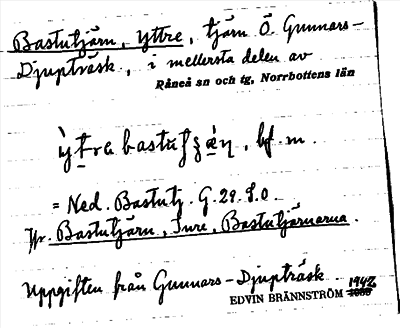 Bastutjärn, Yttre, tjärn Ö. Gunnars-
Djupträsk, i mellersta delen av
Råneå sn och tg, Norrbottens län
bf. m.
= Ned. Bastutj. G. 29. S.O.
Jfr. Bastutjärn, Inre, Bastutjärnarna.
Uppgiften från Gunnars-Djupträsk 1942
EDVIN BRÄNNSTRÖM